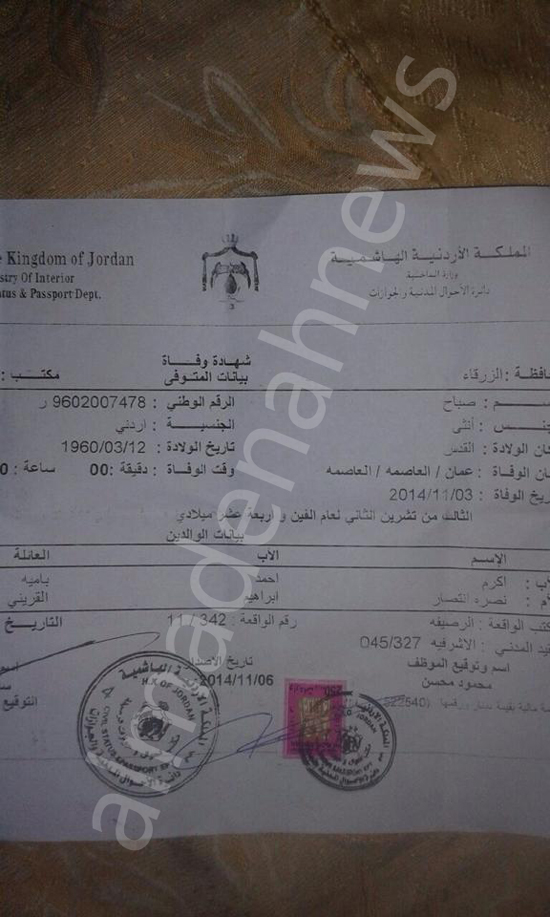 almadenahnews
Kingdom of Jordan
stry Of Interior
atus & Passport Dept.
المملكة الأردنية الهاشمية
وزارة الداخلية
دائرة الأحوال المدنية والجوازات
شهادة وفاة
افظة : الزرقاء بيانات المتوفى مكتب :
سم : صباح الرقم الوطني : 9602007478 ر
نس : أنثى الجنسية : اردني
ان الولادة : القدس تاريخ الولادة : 1960/03/12
ان الوفاة : عمان / العاصمه / العاصمه وقت الوفاة : دقيقة : 00 ساعة : 0
ريخ الوفاة : 2014/11/03
الثالث من تشرين الثاني لعام الفين و اربعة عشر ميلادي
بيانات الوالدين
الإسم الأب العائلة
أب : أكرم احمد باميه
م : نصره انتصار ابراهيم القريني
كتب الواقعة : الرصيفه رقم الواقعة : 342 / 11 التاريخ
يد المدني : الاشرفيه 045/327
اسم وتوقيع الموظف تاريخ الاصدار
محمود محسن 2014/11/06
التوقيع
المملكة الأردنية الهاشمية
H.K. OF JORDAN
CIVIL STATUS & PASSPORT
دائرة الأحوال المدنية والجوازات
250
522540)